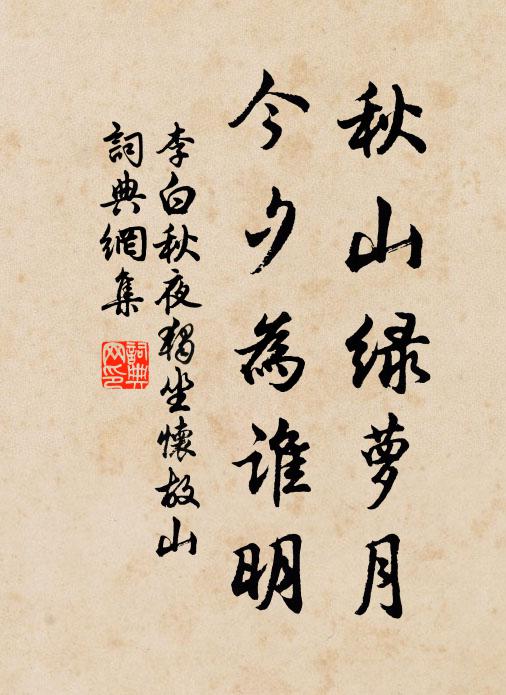 秋山绿萝月
今夕為誰明
李白秋夜獨坐懷故山
詞典網集
詞典网印